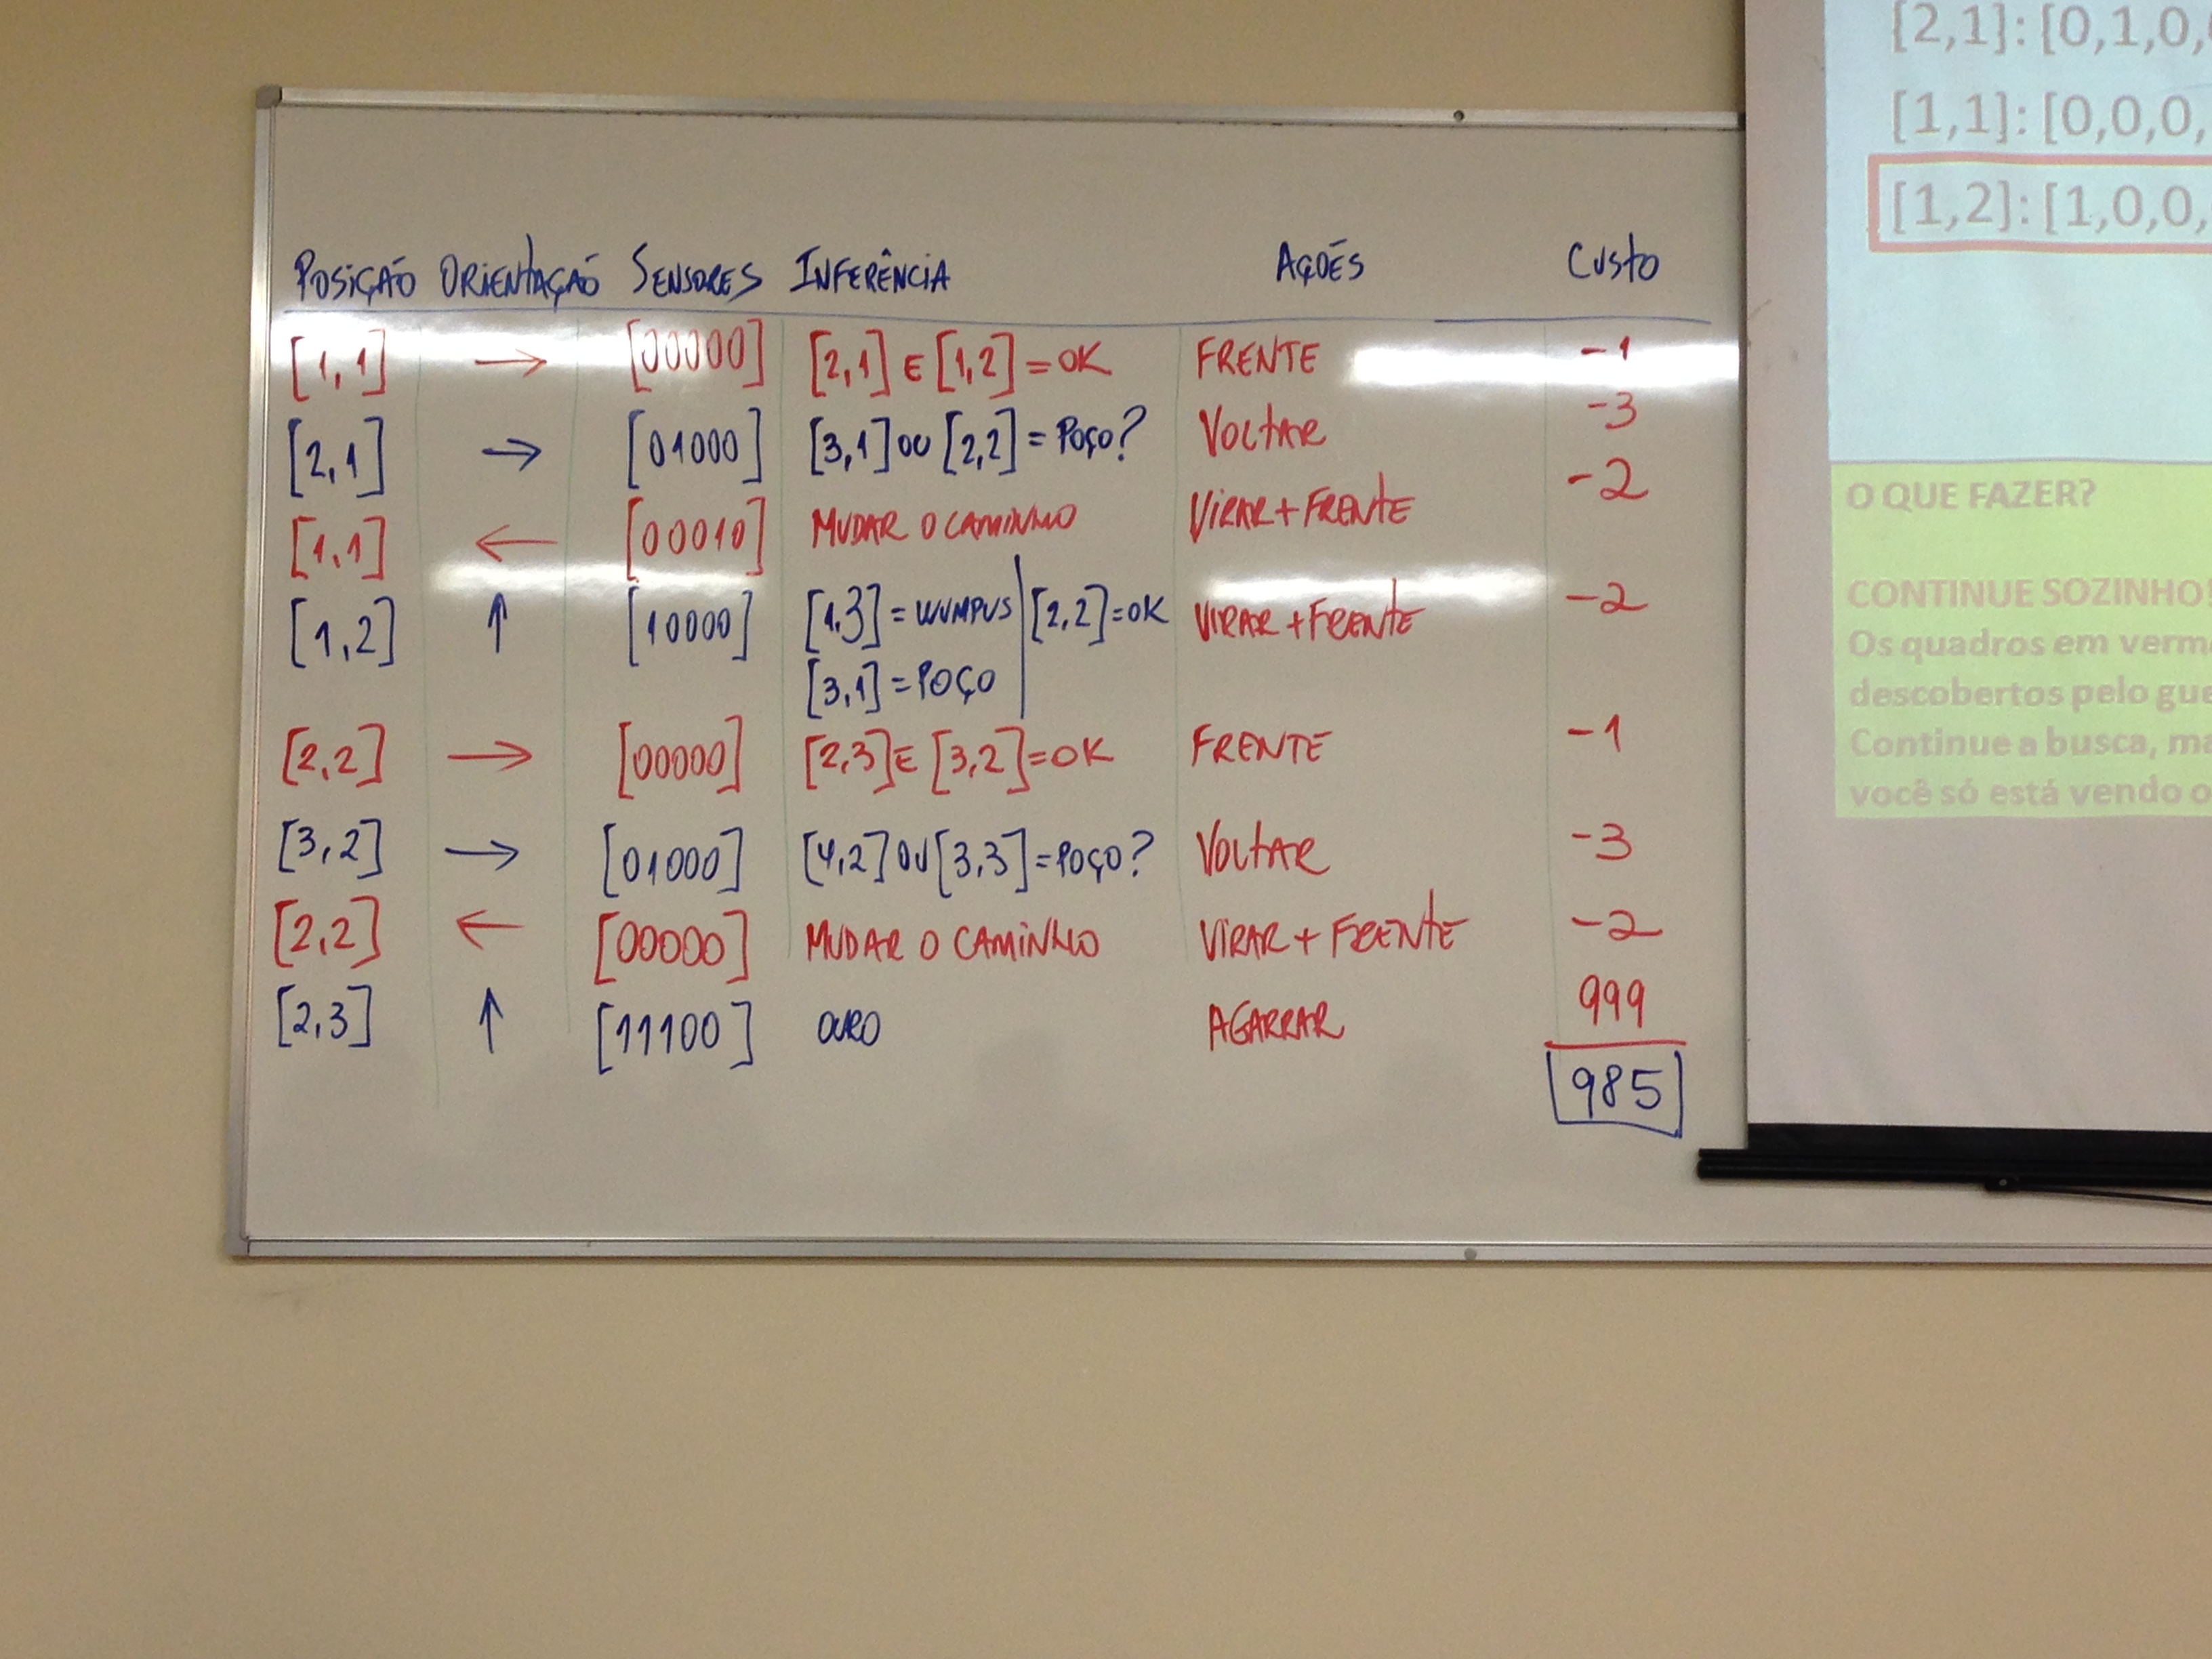 POSIÇÃO ORIENTAÇÃO SENSORES INFERÊNCIA AÇÕES CUSTO
[1,1] → [00000] [2,1] E [1,2] = OK FRENTE -1
[2,1] → [01000] [3,1] OU [2,2] = POÇO? VOLTAR -3
[1,1] ← [00010] MUDAR O CAMINHO VIRAR + FRENTE -2
[1,2] ↑ [10000] [1,3] = WUMPUS | [2,2] = OK VIRAR + FRENTE -2
[3,1] = POÇO
[2,2] → [00000] [2,3] E [3,2] = OK FRENTE -1
[3,2] → [01000] [4,2] OU [3,3] = POÇO? VOLTAR -3
[2,2] ← [00000] MUDAR O CAMINHO VIRAR + FRENTE -2
[2,3] ↑ [11100] OURO AGARRAR 999
985
[2,1]: [0,1,0,
[1,1]: [0,0,0,
[1,2]: [1,0,0,
O QUE FAZER?
CONTINUE SOZINHO!
Os quadros em verm
descobertos pelo gue
Continue a busca, ma
você só está vendo o